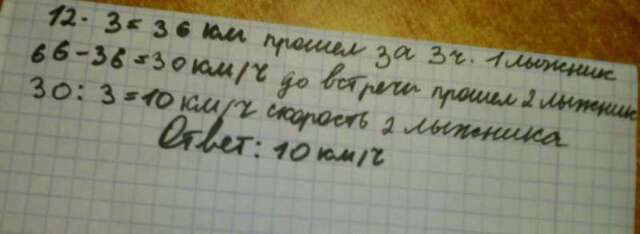 12. 3 = 36 км прошел за 3ч. 1 лыжник
66-36=30км/ч до встречи прошел 2 лыжник
30:3=10км/ч скорость 2 лыжника
Ответ: 10км/ч